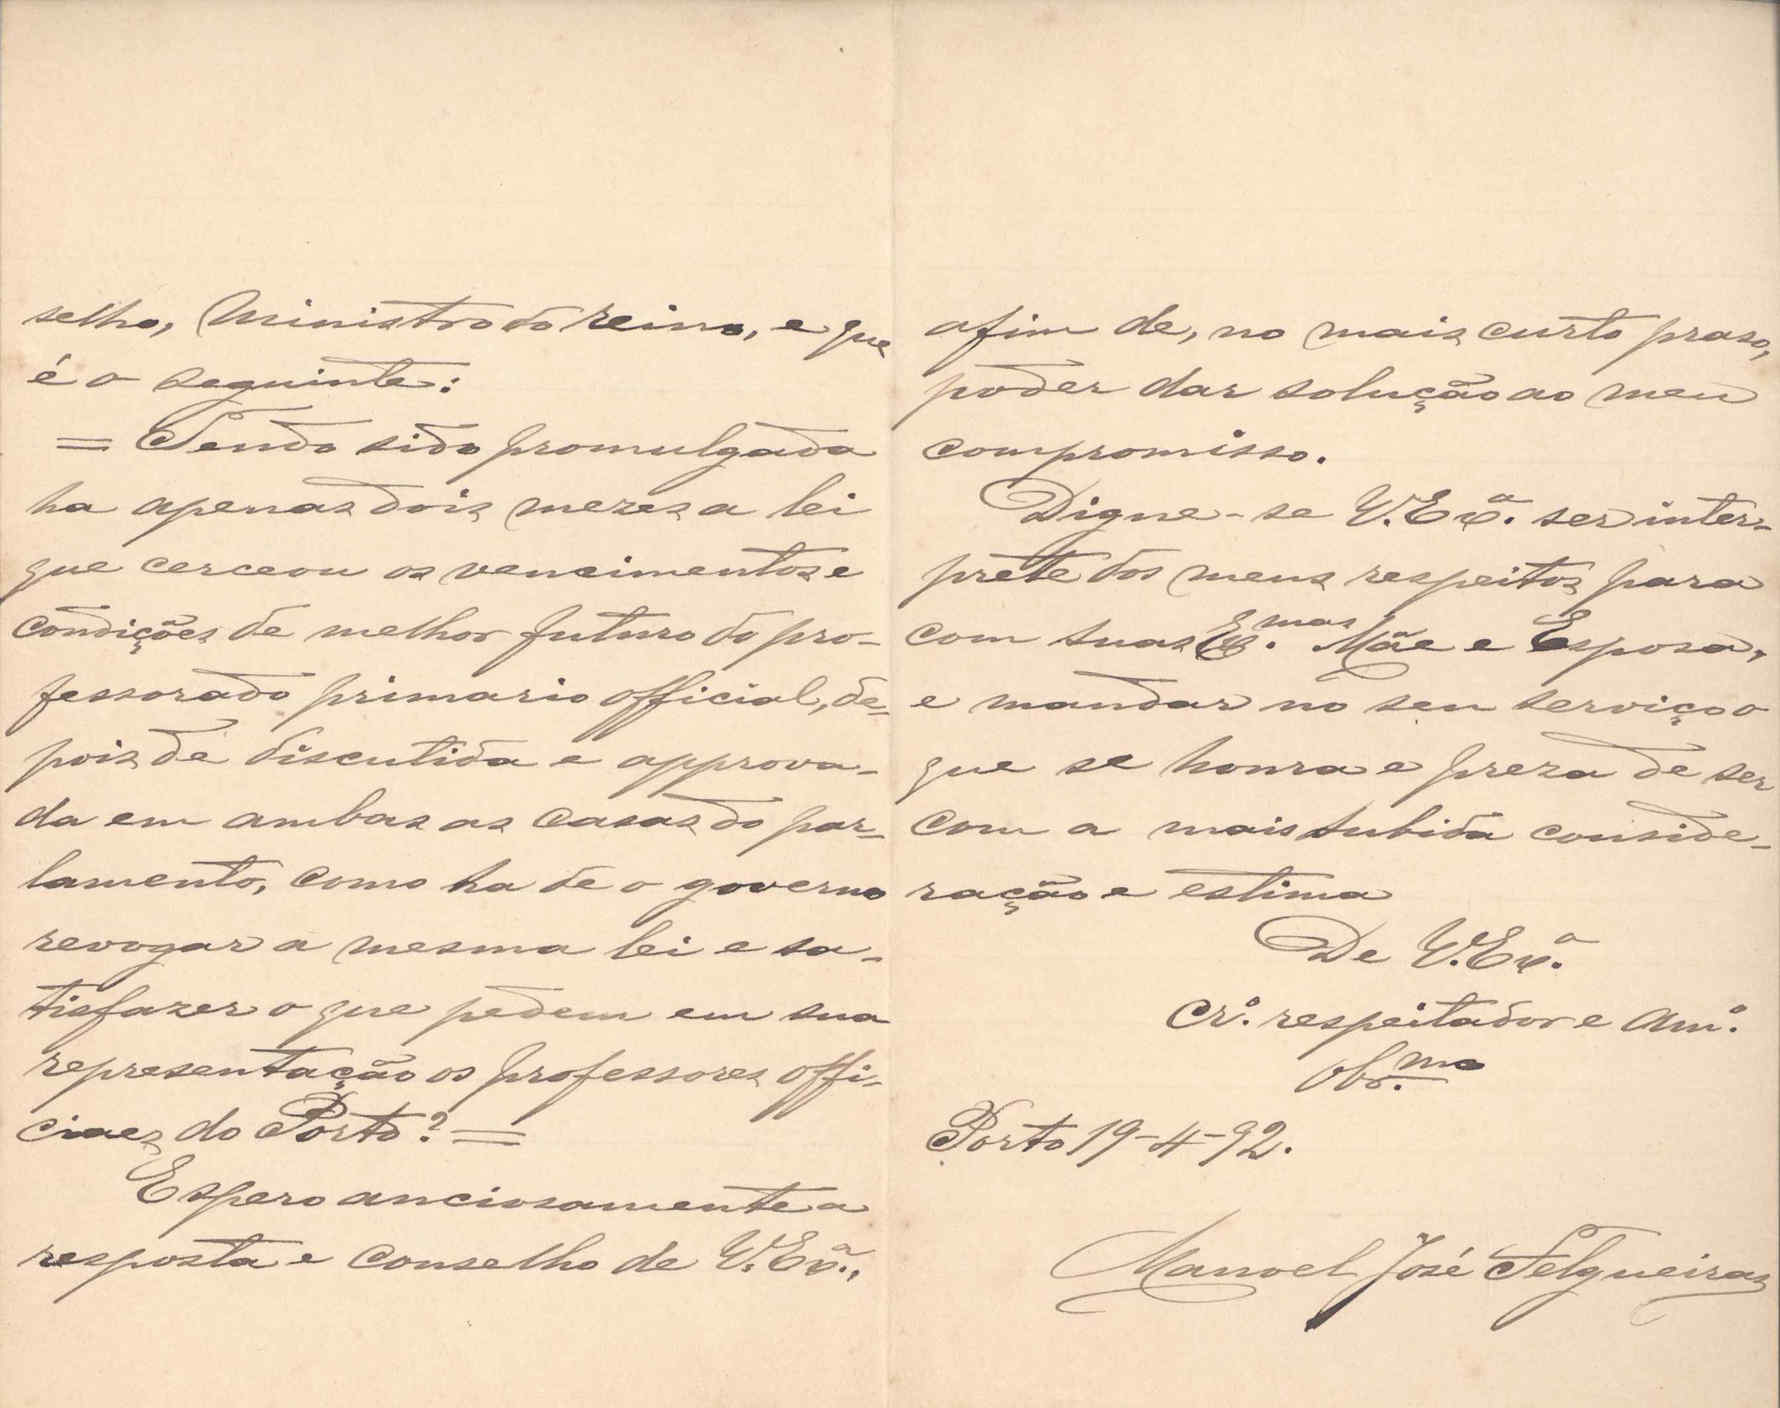 selho, Ministro do reino, e que
é o seguinte:
= Tendo sido promulgada
ha apenas dois mezes a lei
que cerceou os vencimentos e
condições de melhor futuro do pro-
fessorado primario official, de-
pois de discutida e approva-
da em ambas as casas do par-
lamento, como ha de o governo
revogar a mesma lei e sa-
tisfazer o que pedem em sua
representação os professores offi-
ciaes do Porto? =
Espero anciosamente a
resposta e conselho de V. Exª.,
afim de, no mais curto praso,
poder dar solução ao meu
compromisso.
Digne-se V. Exª. ser inter-
prete dos meus respeitos para
com suas Ex.mas Mãe e Esposa,
e mandar no seu serviço o
que se honra e preza de ser
com a mais subida conside-
ração e estima
De V. Exª.
Cr.º respeitador e am.º
obr.mo
Porto 19-4-92.
Manoel José Felgueiras